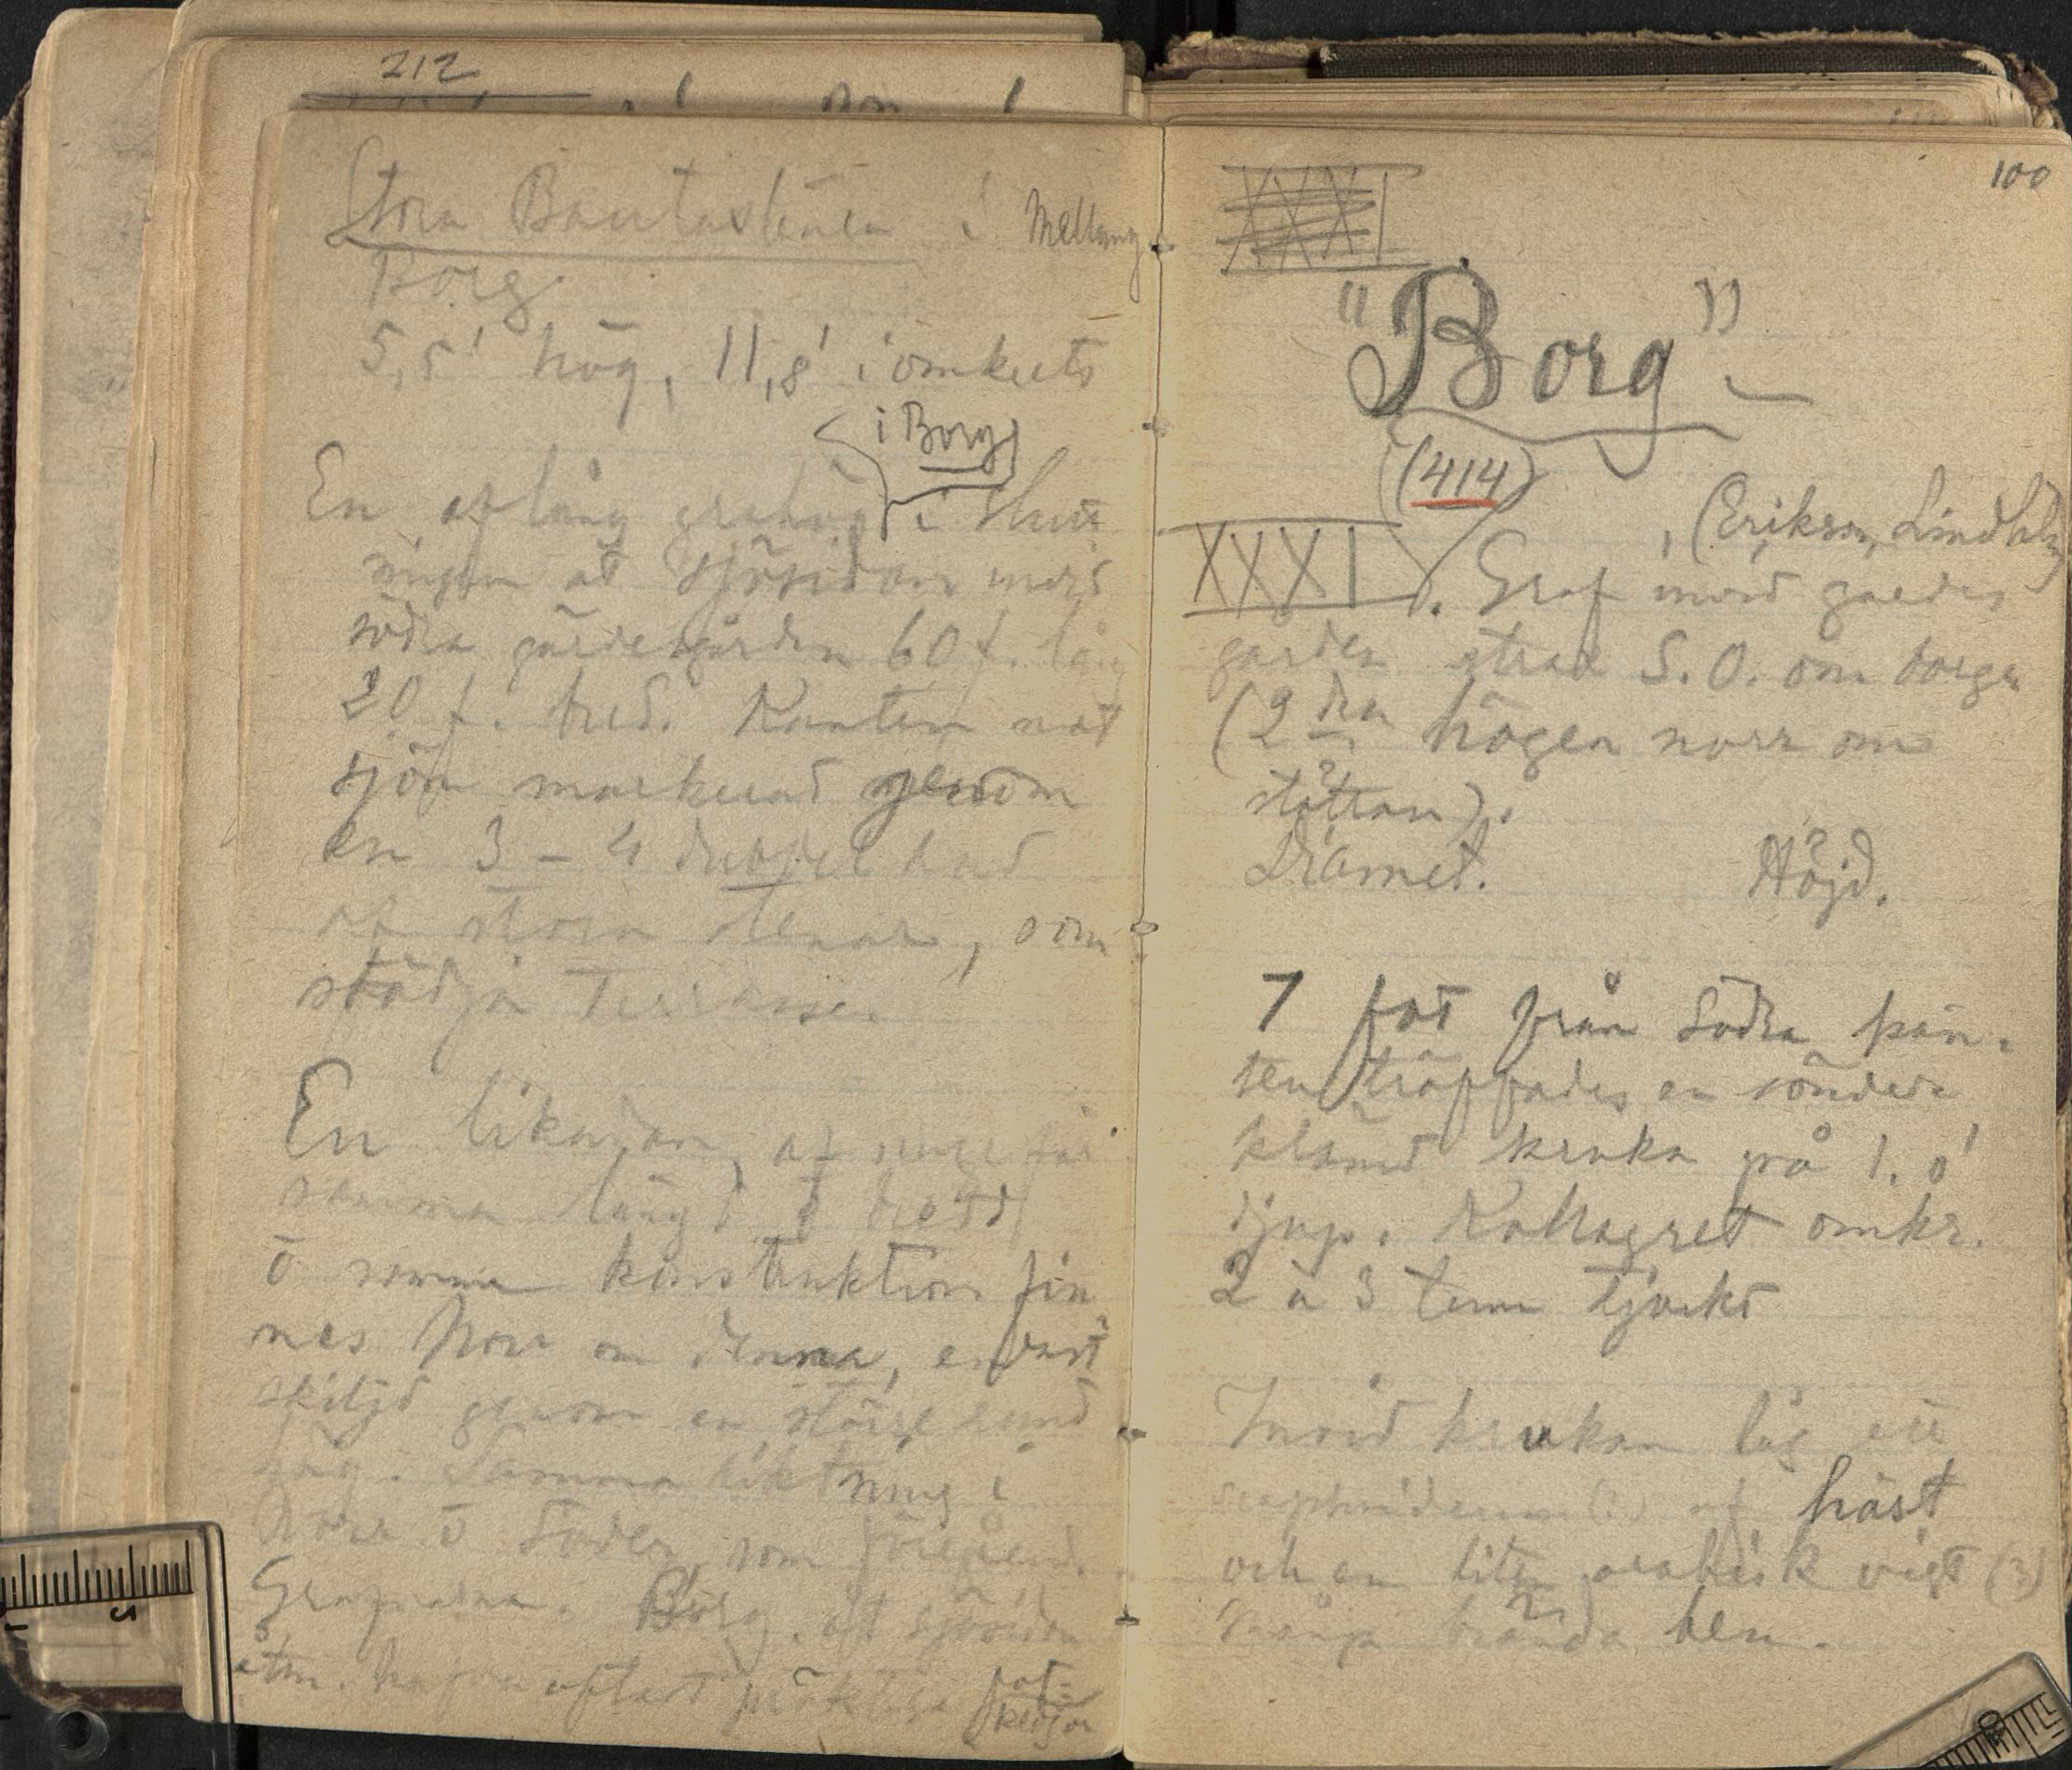 212
Stora Bautastenen i Mellang
Borg
5,5' hög, 11,8' i omkrets
i Borg
En aflång grafhög i slutt
ningen åt sjösidan mots
södra gärdesgården 60 f. lång
20 f. bred. Kanten mot
sjön markerad genom
en 3 - 4 dubbel rad
af stora stenar, som
stödja Terrassen
En likadan, af ungefär
samma längd o bredd
o samma konstruktion fin
nes Norr om denna, endast
skiljd genom en större rund
hög. Samma riktning i
Norr o Söder, som föregående.
Grafvarna i Borg, åt sjösidan
åtm. hafva oftast präktiga fot=
kedjor
100
XXXI
"Borg"
(414)
(Erikson, Lindholm
XXXIV. Graf invid gärdes
gården strax S.O. om borgen
(2dra högen norr om
stättan).
Diamet. Höjd.
7 fot från södra kan-
ten träffades en sönder
klämd kruka på 1.0'
djup. Kollagret omkr.
2 à 3 tum tjockt
Invid krukan låg ett
scaphoideum (?) af häst
och en liten arabisk vigt (3)
Många brända ben.